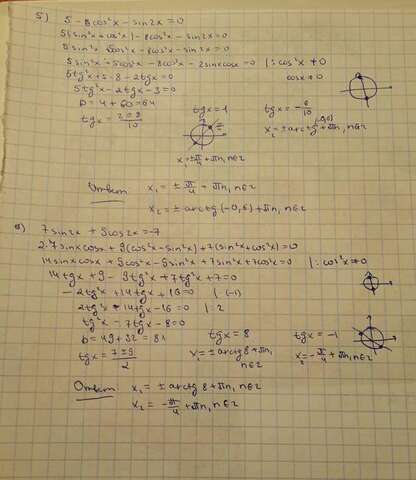 5) 5 - 8cos²x - sin2x = 0
5(sin²x + cos²x) - 8cos²x - sin2x = 0
5sin²x + 5cos²x - 8cos²x - sin2x = 0
5sin²x + 5cos²x - 8cos²x - 2sinxcosx = 0 | : cos²x ≠ 0
cosx ≠ 0
5tg²x + 5 - 8 - 2tgx = 0
5tg²x - 2tgx - 3 = 0
D = 4 + 60 = 64
tgx = (2 ± 8)/10
tgx = 1
x₁ = ± π/4 + πn, n∈Z
tgx = -6/10
x₂ = ± arctg(-0,6) + πn, n∈Z
Ответ x₁ = ± π/4 + πn, n∈Z
x₂ = ± arctg(-0,6) + πn, n∈Z
7sin2x + 9cos2x = -7
2·7sinxcosx + 9(cos²x - sin²x) + 7(sin²x + cos²x) = 0
14sinxcosx + 9cos²x - 9sin²x + 7sin²x + 7cos²x = 0 | : cos²x ≠ 0
14tgx + 9 - 9tg²x + 7tg²x + 7 = 0
-2tg²x + 14tgx + 16 = 0 | (-1)
2tg²x - 14tgx - 16 = 0 | : 2
tg²x - 7tgx - 8 = 0
D = 49 + 32 = 81
tgx = (7 ± 9)/2
tgx = 8
x₁ = ± arctg8 + πn, n∈Z
tgx = -1
x₂ = -π/4 + πn, n∈Z
Ответ x₁ = ± arctg8 + πn, n∈Z
x₂ = -π/4 + πn, n∈Z